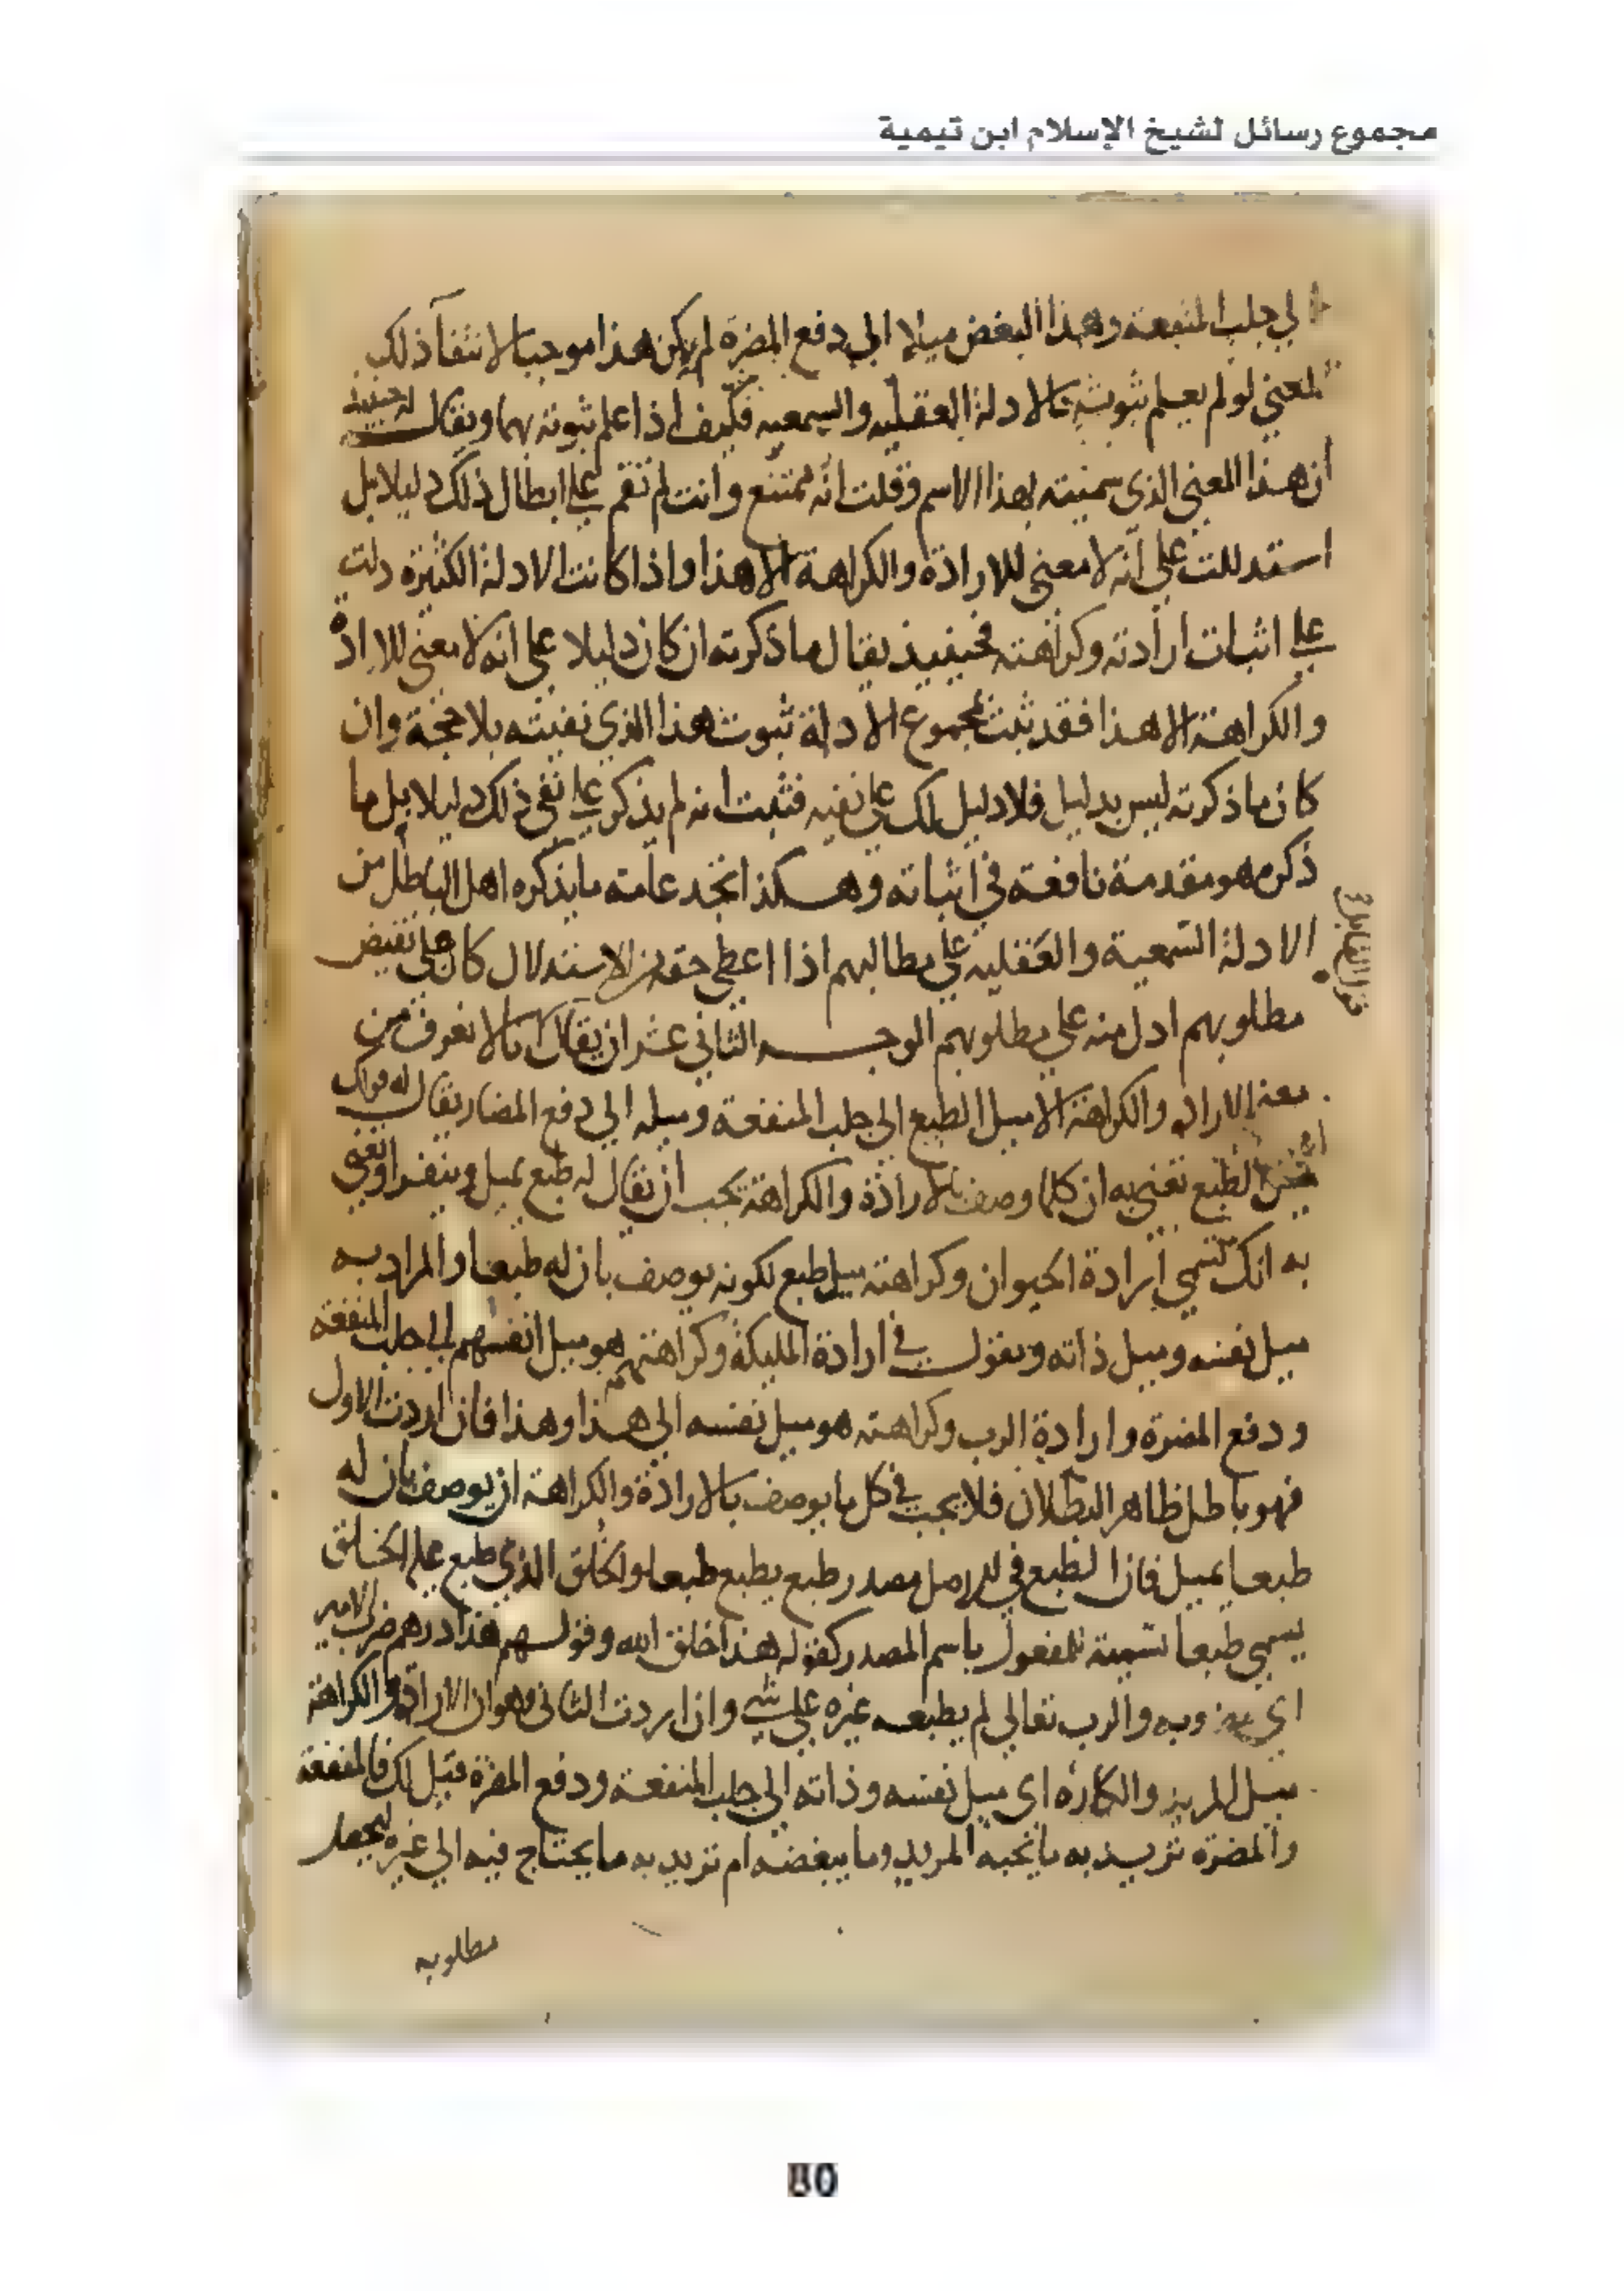 مجموع رسائل لشيخ الإسلام ابن تيمية
الي جلب المنفعة وهذا البغض ميلا الي دفع المضرة لم يكن هذا موجبا لانتفآ ذلك
المعني لو لم يعلم ثبوته بالادلة العقليه والسمعيه فكيف اذا علم ثبوته بهما ويقال له حينيذ
ان هذا المعني الذي سميته بهذا الاسم وقلت انه ممتنع وانت لم تقم علي ابطال ذلك دليلا بل
استدللت علي انه لا معني للارادة والكراهة الا هذا واذا كانت الادلة الكثيرة دلت
علي اثبات ارادته وكراهته فحينيذ يقال ما ذكرته ان كان دليلا علي انه لا معني للارادة
والكراهة الا هذا فقد ثبت بمجموع الادلة ثبوت هذا الذي نفيته بلا حجة وان
كان ما ذكرته ليس بدليل فلا دليل لك علي نفيه فثبت انه لم يذكر علي نفي ذلك دليلا بل ما
ذكره هو مقدمة نافعة في اثباته وهكذا تجد عامة ما يذكره اهل الباطل من
الادلة السمعية والعقليه علي مطالبهم اذا اعطي حقه من الاستدلال كان علي نقيض
مطلوبهم ادل منه علي مطلوبهم الوجه الثاني عشر ان يقال انا لا نعرف من
معني الارادة والكراهة الا ميل الطبع الي جلب المنفعة وميله الي دفع المضار يقال له قولك
الطبع تعني به ان كلما وصف بالارادة والكراهة يجب ان يقال له طبع يميل وينفر او تعني
به انك تسمي ارادة الحيوان وكراهته ميل طبع لكونه يوصف بان له طبعا والمراد به
ميل نفسه وميل ذاته ويقول في ارادة المليكة وكراهتهم هو ميل انفسهم الي جلب المنفعة
ودفع المضرة وارادة الرب وكراهته هو ميل نفسه الي هذا وهذا فان اردت الاول
فهو باطل ظاهر البطلان فلا يجب في كل ما يوصف بالارادة والكراهة ان يوصف بان له
طبعا يميل فان الطبع في الاصل مصدر طبع يطبع طبعا والخلق الذي طبع عليه الخلق
يسمي طبعا تسمية للمفعول باسم المصدر كقوله هذا خلق الله وقولهم هذا درهم ضرب الامير
اي مضروبه والرب تعالي لم يطبعه غيره علي شي وان اردت الثاني وهو ان الارادة والكراهة
ميل المريد والكاره اي ميل نفسه وذاته الي جلب المنفعة ودفع المضرة قيل لك فالمنفعة
والمضرة تريد به ما يحبه المريد وما يبغضه ام تريد به ما يحتاج فيه الي غيره ليحصل
مطلوبه
80